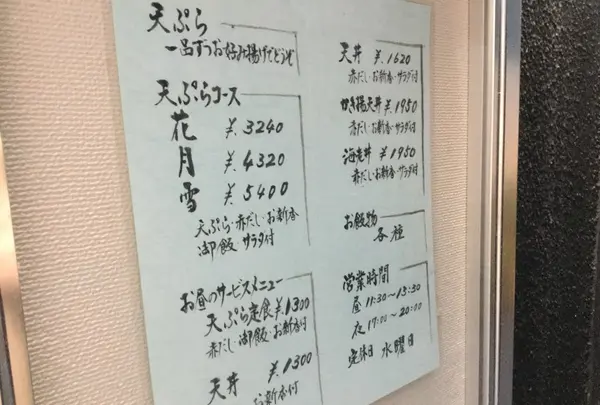 天ぷら
一品ずつお好み揚げでどうぞ
天ぷらコース
花 ¥.3240
月 ¥.4320
雪 ¥.5400
天ぷら・赤だし・お新香
御飯 サラダ付
お昼のサービスメニュー
天ぷら定食 ¥.1300
赤だし・御飯・お新香付
天丼 ¥.1300
お新香付
天丼 ¥.1620
赤だし・お新香・サラダ付
かき揚天丼 ¥.1950
赤だし・お新香・サラダ付
海老丼 ¥.1950
赤だし・お新香・サラダ付
お飲物
各種
営業時間
昼 11:30〜13:30
夜 17:00〜20:00
定休日 水曜日